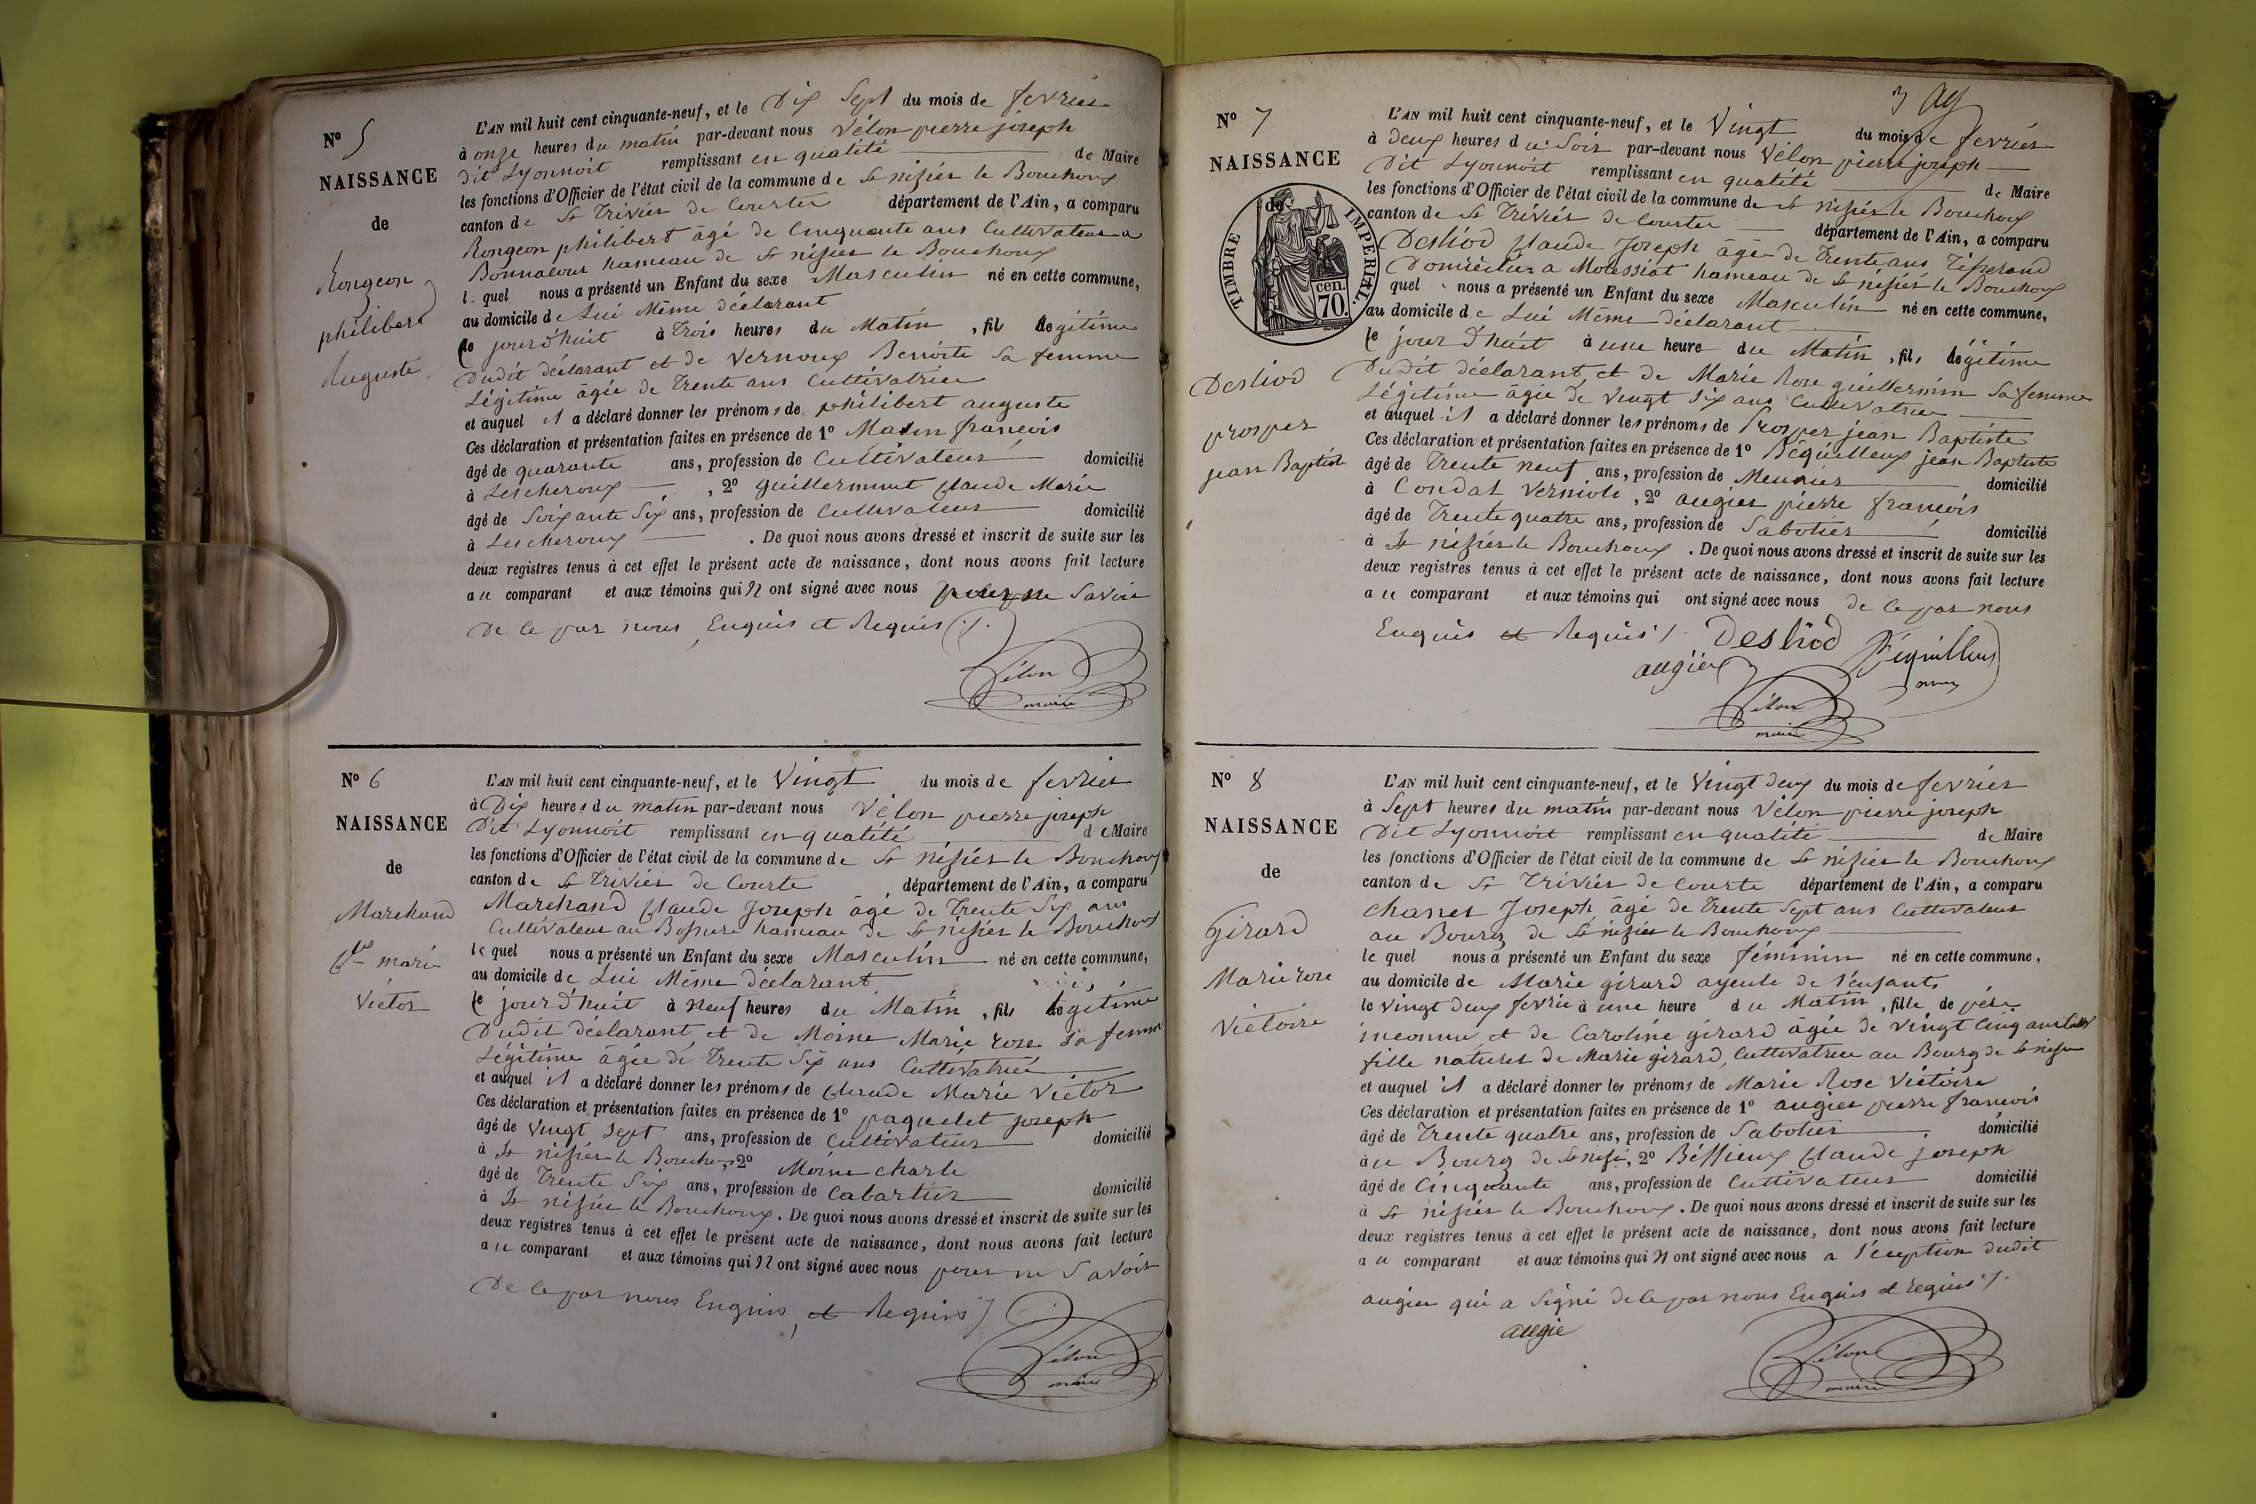 N° 5
NAISSANCE
de
Rongeon
philibert
Auguste
L'AN mil huit cent cinquante-neuf, et le Dix Sept du mois de fevrier
à onze heures du matin par-devant nous Vélon pierre joseph
dit Lyonnoit remplissant en qualité de Maire
les fonctions d'Officier de l'état civil de la commune de St nizier le Bouchoux
canton de St Trivier de Courtes département de l'Ain, a comparu
Rongeon philibert âgé de Cinquante ans Cultivateur a
Bonnacour hameau de St nizier le Bouchoux
le quel nous a présenté un Enfant du sexe Masculin né en cette commune,
au domicile de Lui Même déclarant
le jourd'huit à Trois heures du Matin, fils légitime
Dudit déclarant et de Vernoux Benoite Sa femme
Légitime âgée de Trente ans Cultivatrice
et auquel il a déclaré donner les prénoms de philibert auguste
Ces déclaration et présentation faites en présence de 1° françois
âgé de quarante ans, profession de Cultivateur domicilié
à Lescheroux, 2° guillerminet Claude Marie
âgé de Soixante Six ans, profession de Cultivateur domicilié
à Lescheroux. De quoi nous avons dressé et inscrit de suite sur les
deux registres tenus à cet effet le présent acte de naissance, dont nous avons fait lecture
au comparant et aux témoins qui N ont signé avec nous pour ne Savoir
De ce par nous Enquis et Requis
Vélon
maire
N° 6
NAISSANCE
de
Marchand
Cde marie
Victor
L'AN mil huit cent cinquante-neuf, et le Vingt du mois de fevrier
à Dix heures du matin par-devant nous Vélon pierre joseph
Dit Lyonnoit remplissant en qualité de Maire
les fonctions d'Officier de l'état civil de la commune de St nizier le Bouchoux
canton de St Trivier de Courte département de l'Ain, a comparu
Marchand Claude Joseph âgé de Trente Six ans
Cultivateur au hameau de St nizier le Bouchoux
le quel nous a présenté un Enfant du sexe Masculin né en cette commune,
au domicile de Lui Même déclarant
le jourd'huit à neuf heures du Matin, fils légitime
Dudit déclarant et de Moine Marie rose Sa femme
Légitime âgée de Trente Six ans Cultivatrice
et auquel il a déclaré donner les prénoms de Claude Marie Victor
Ces déclaration et présentation faites en présence de 1° paquelet joseph
âgé de Vingt Sept ans, profession de Cultivateur domicilié
à St nizier le Bouchoux, 2° Moine Charle
âgé de Trente Six ans, profession de Cabartier domicilié
à St nizier le Bouchoux. De quoi nous avons dressé et inscrit de suite sur les
deux registres tenus à cet effet le présent acte de naissance, dont nous avons fait lecture
au comparant et aux témoins qui N ont signé avec nous pour ne Savoir
De ce par nous Enquis et Requis
Vélon
maire
3
N° 7
NAISSANCE
de
TIMBRE IMPERIAL.
70. cen.
Desliod
prosper
jean Baptiste
L'AN mil huit cent cinquante-neuf, et le Vingt du mois de fevrier
à Deux heures du Soir par-devant nous Vélon pierre joseph
Dit Lyonnoit remplissant en qualité de Maire
les fonctions d'Officier de l'état civil de la commune de St nizier le Bouchoux
canton de St Trivier de Courtes département de l'Ain, a comparu
Desliod Claude Joseph âgé de Trente ans Tisserand
Domicilier a Motessiat hameau de St nizier le Bouchoux
quel nous a présenté un Enfant du sexe Masculin né en cette commune,
au domicile de Lui Même déclarant
le jour d'huit à une heure du Matin, fils légitime
Dudit déclarant et de Marie Rose guillermin Sa femme
Légitime âgée de Vingt Six ans Cultivatrice
et auquel il a déclaré donner les prénoms de Prosper jean Baptiste
Ces déclaration et présentation faites en présence de 1° Béquilleux jean Baptiste
âgé de Trente neuf ans, profession de Meunier domicilié
à Condal Verniole, 2° augier pierre françois
âgé de Trente quatre ans, profession de Sabotier domicilié
à St nizier le Bouchoux. De quoi nous avons dressé et inscrit de suite sur les
deux registres tenus à cet effet le présent acte de naissance, dont nous avons fait lecture
au comparant et aux témoins qui ont signé avec nous de ce par nous
Enquis et Requis Desliod Béquilleux
augier
Vélon
maire
N° 8
NAISSANCE
de
Girard
Marie rose
Victoire
L'AN mil huit cent cinquante-neuf, et le Vingt deux du mois de fevrier
à Sept heures du matin par-devant nous Vélon pierre joseph
Dit Lyonnoit remplissant en qualité de Maire
les fonctions d'Officier de l'état civil de la commune de St nizier le Bouchoux
canton de St Trivier de Courte département de l'Ain, a comparu
Chanel Joseph âgé de Trente Sept ans Cultivateur
au Bourg de St nizier le Bouchoux
le quel nous a présenté un Enfant du sexe féminin né en cette commune,
au domicile de Marie girard ayeule de l'enfant
le Vingt deux fevrie à une heure du Matin, fille de père
inconnu et de Caroline girard âgée de Vingt Cinq ans
fille naturel de Marie girard, Cultivatrice au Bourg de St nizier
et auquel il a déclaré donner les prénoms de Marie Rose Victoire
Ces déclaration et présentation faites en présence de 1° augier pierre françois
âgé de Trente quatre ans, profession de Sabotier domicilié
au Bourg de St nizi, 2° Béssieux Claude joseph
âgé de Cinquante ans, profession de Cultivateur domicilié
à St nizier le Bouchoux. De quoi nous avons dressé et inscrit de suite sur les
deux registres tenus à cet effet le présent acte de naissance, dont nous avons fait lecture
au comparant et aux témoins qui N ont signé avec nous a l'éception dudit
augier qui a Signé de ce par nous Enquis et requis
augie
Vélon
maire